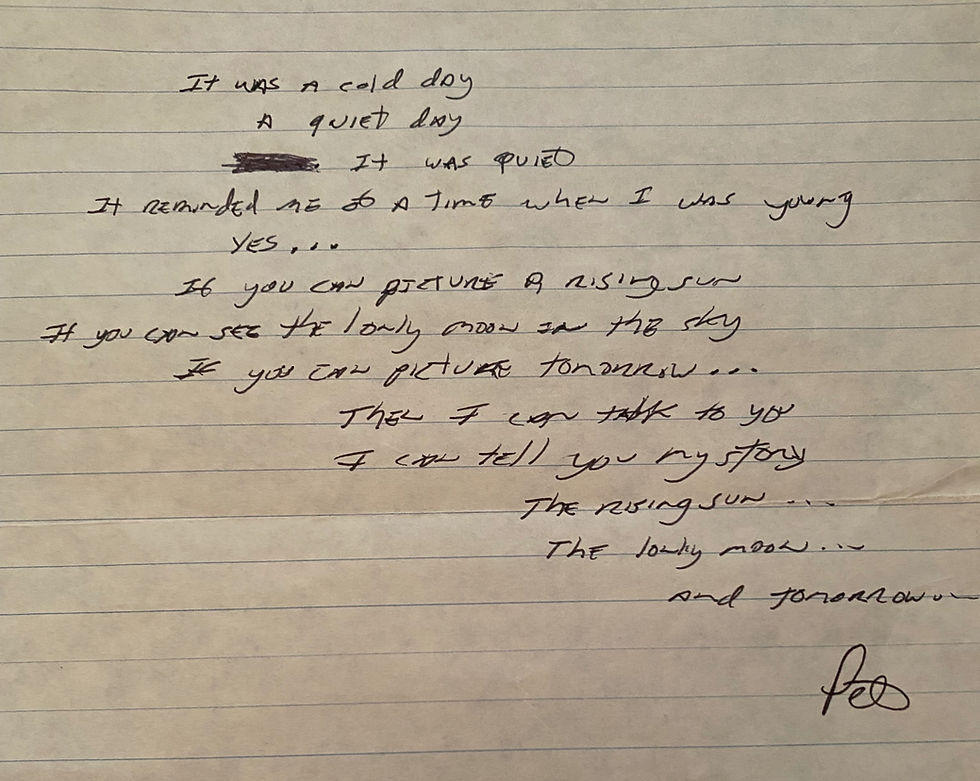 It was a cold day
A quiet day
It was quiet
It reminded me of a time when I was young
Yes...
If you can picture a rising sun
If you can see the lonly moon in the sky
If you can picture tomorrow...
Then I can talk to you
I can tell you my story
The rising sun...
The lonly moon...
And tomorrow...